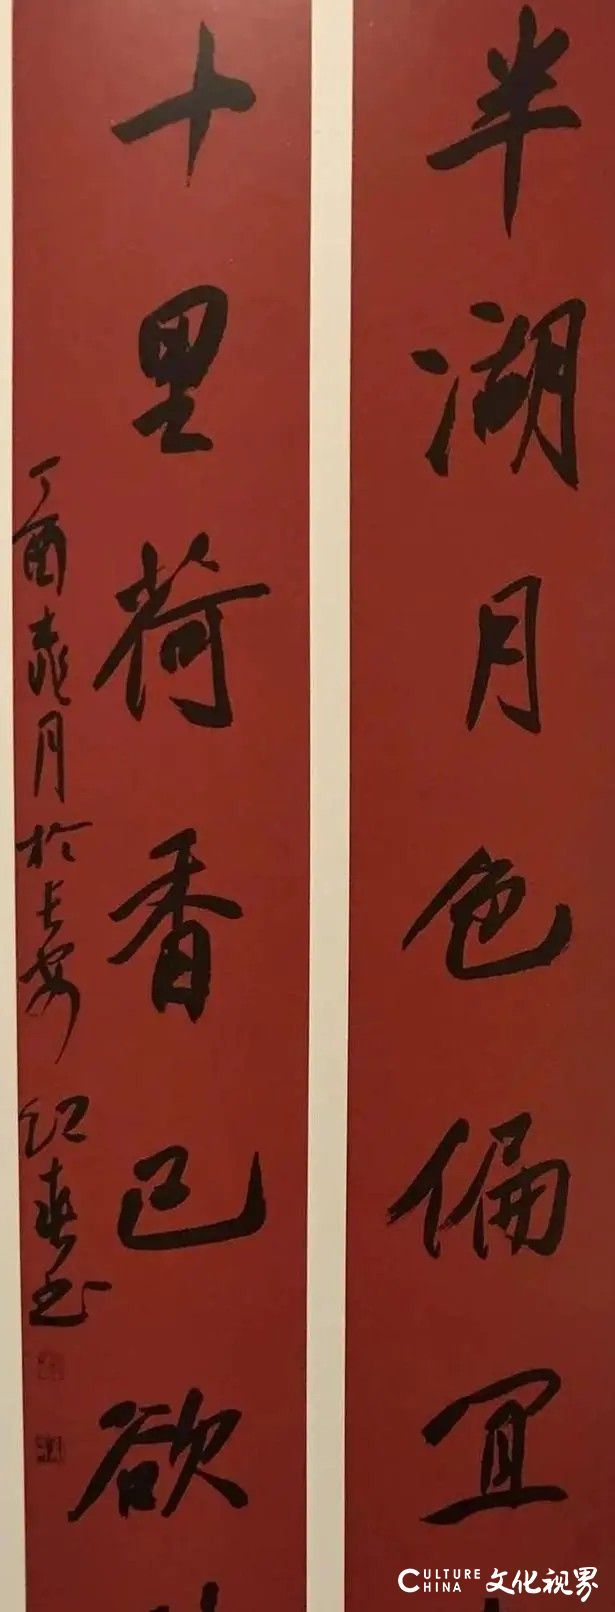 半湖月色偏宜
十里荷香已欲
丁酉桃月於长安 纪春书
CULTURE CHINA 文化视界